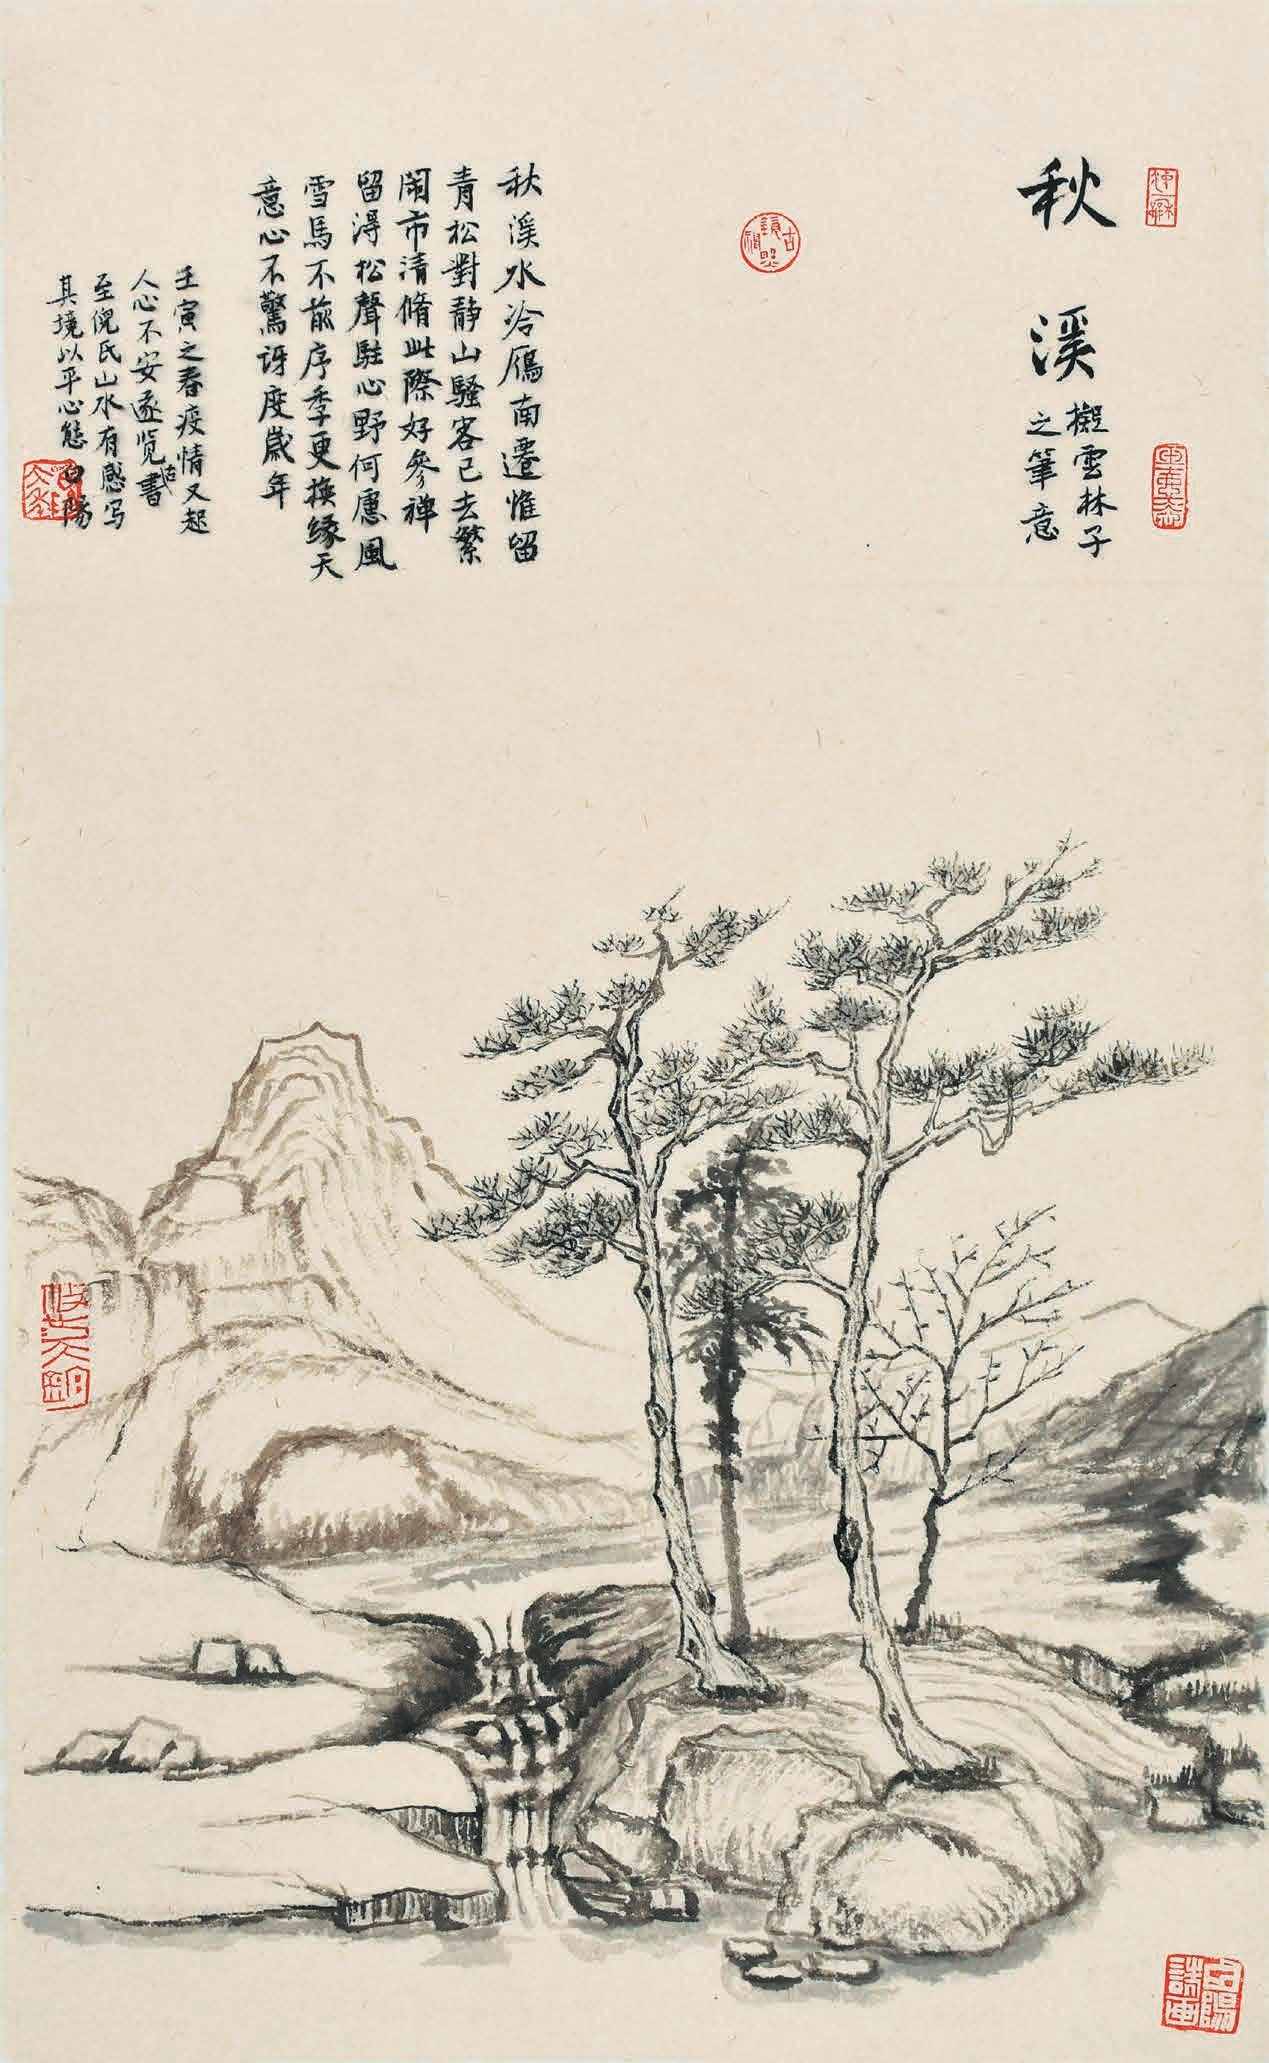 秋溪
擬雲林子
之筆意
古鏡照神
秋溪水冷鴈南遷惟留
青松對静山騷客已去繁
閙市清脩此際好參禅
留得松聲駐心野何慮風
雪馬不前序季更換緣天
意心不驚訝度歲年
壬寅之春疫情又起
人心不安遂览古書
至倪氏山水有感写
其境以平心態白陽
白陽
詩画